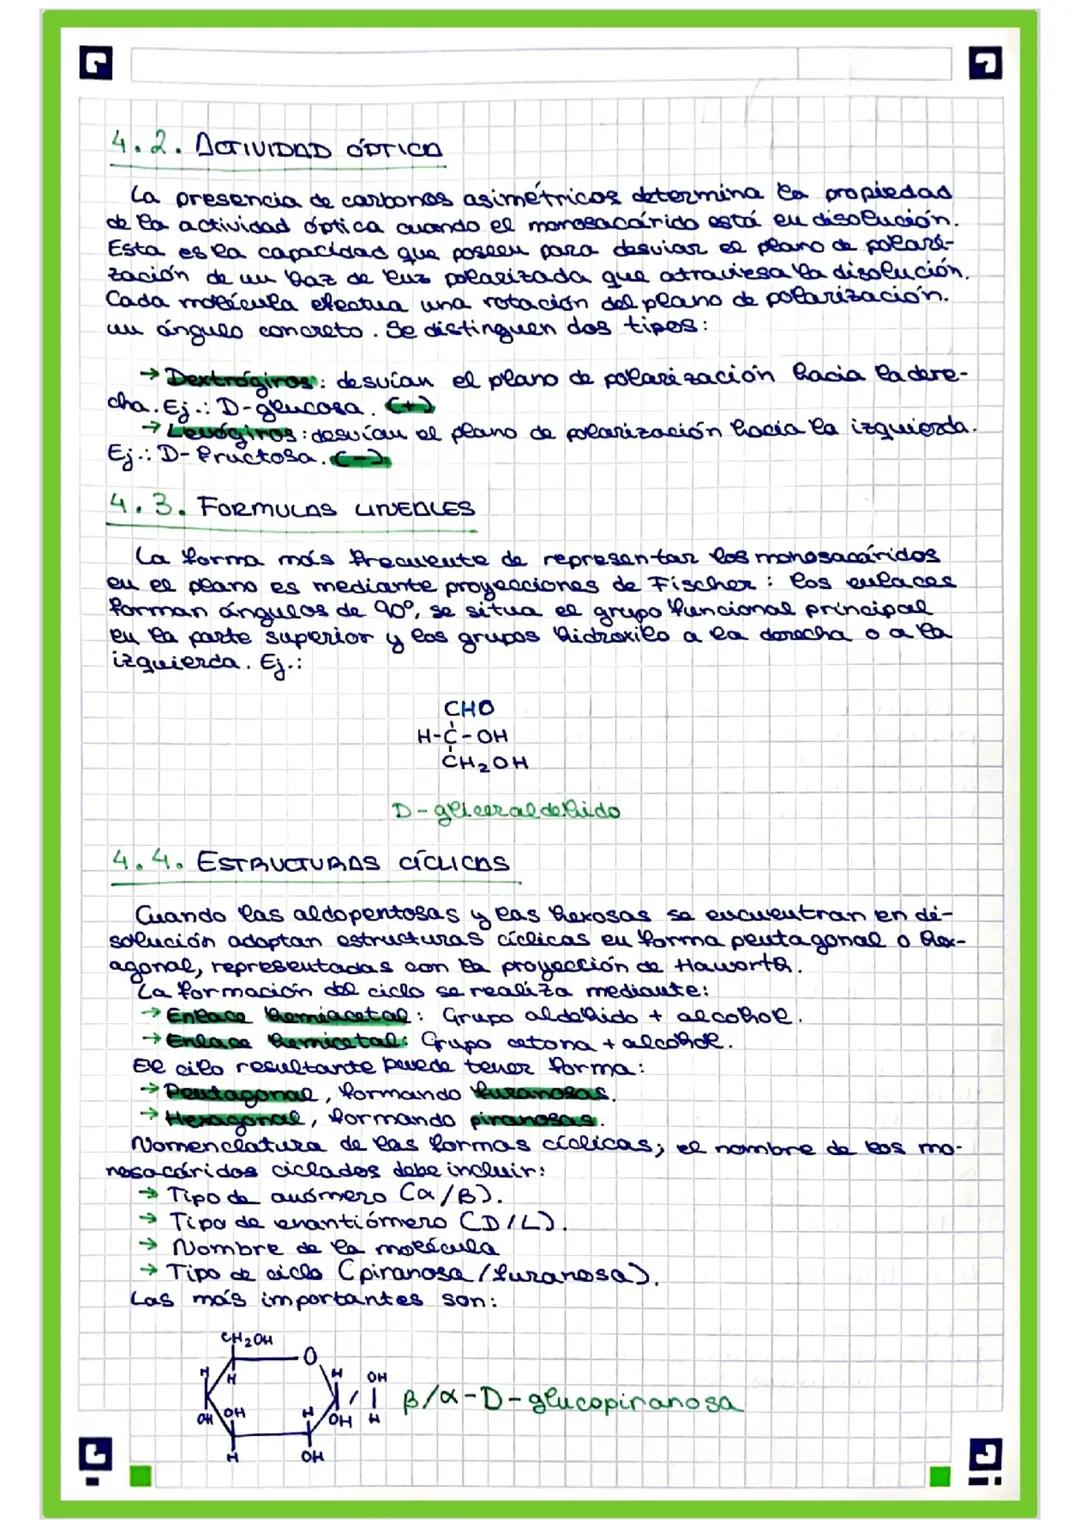 4.2. ACTIVIDAD ÓPTICA
La presencia de carbonos asimétricos determina la propiedad
de la actividad óptica cuando el monosacárido está en disolución.
Esta es la capacidad que poseen para desviar el plano de polari-
zación de un haz de luz polarizada que atraviesa la disolución.
Cada molécula efectua una rotación del plano de polarización.
un ángulo concreto. Se distinguen dos tipos:
→ Dextrógiros: desvían el plano de polarización hacia la dere-
cha. Ej.: D-glucosa. (+)
→ Levógiros: desvían el plano de polarización hacia la izquierda.
Ej.: D-fructosa. (-)
4.3. FORMULAS LINEALES
La forma más frecuente de representar los monosacáridos
en el plano es mediante proyecciones de Fischer: los enlaces
forman ángulos de 90º, se situa el grupo funcional principal
en la parte superior y los grupos hidroxilo a la derecha o a la
izquierda. Ej.:
CHO
H-C-OH
CH₂OH
D-gliceraldehido
4.4. ESTRUCTURAS CÍCLICAS
Cuando las aldopentosas y las hexosas se encuentran en di-
solución adoptan estructuras cíclicas en forma pentagonal o hex-
agonal, representadas con la proyección de Haworth.
La formación del ciclo se realiza mediante:
→ Enlace hemiacetal: Grupo aldehido + alcohol.
→ Enlace hemicetal: Grupo cetona + alcohol.
El cilo resultante puede tener forma:
→ Pentagonal, formando furanosas.
→ Hexagonal, formando piranosas.
Nomenclatura de las formas cíclicas; el nombre de los mo-
nosacáridos ciclados debe incluir:
→ Tipo de anómero (α/β).
→ Tipo de enantiómero (D/L).
→ Nombre de la molécula
→ Tipo de ciclo (piranosa/furanosa).
Las más importantes son:
CH₂OH
O
H H H OH
OH OH H / OH H
β/α-D-glucopiranosa
H OH